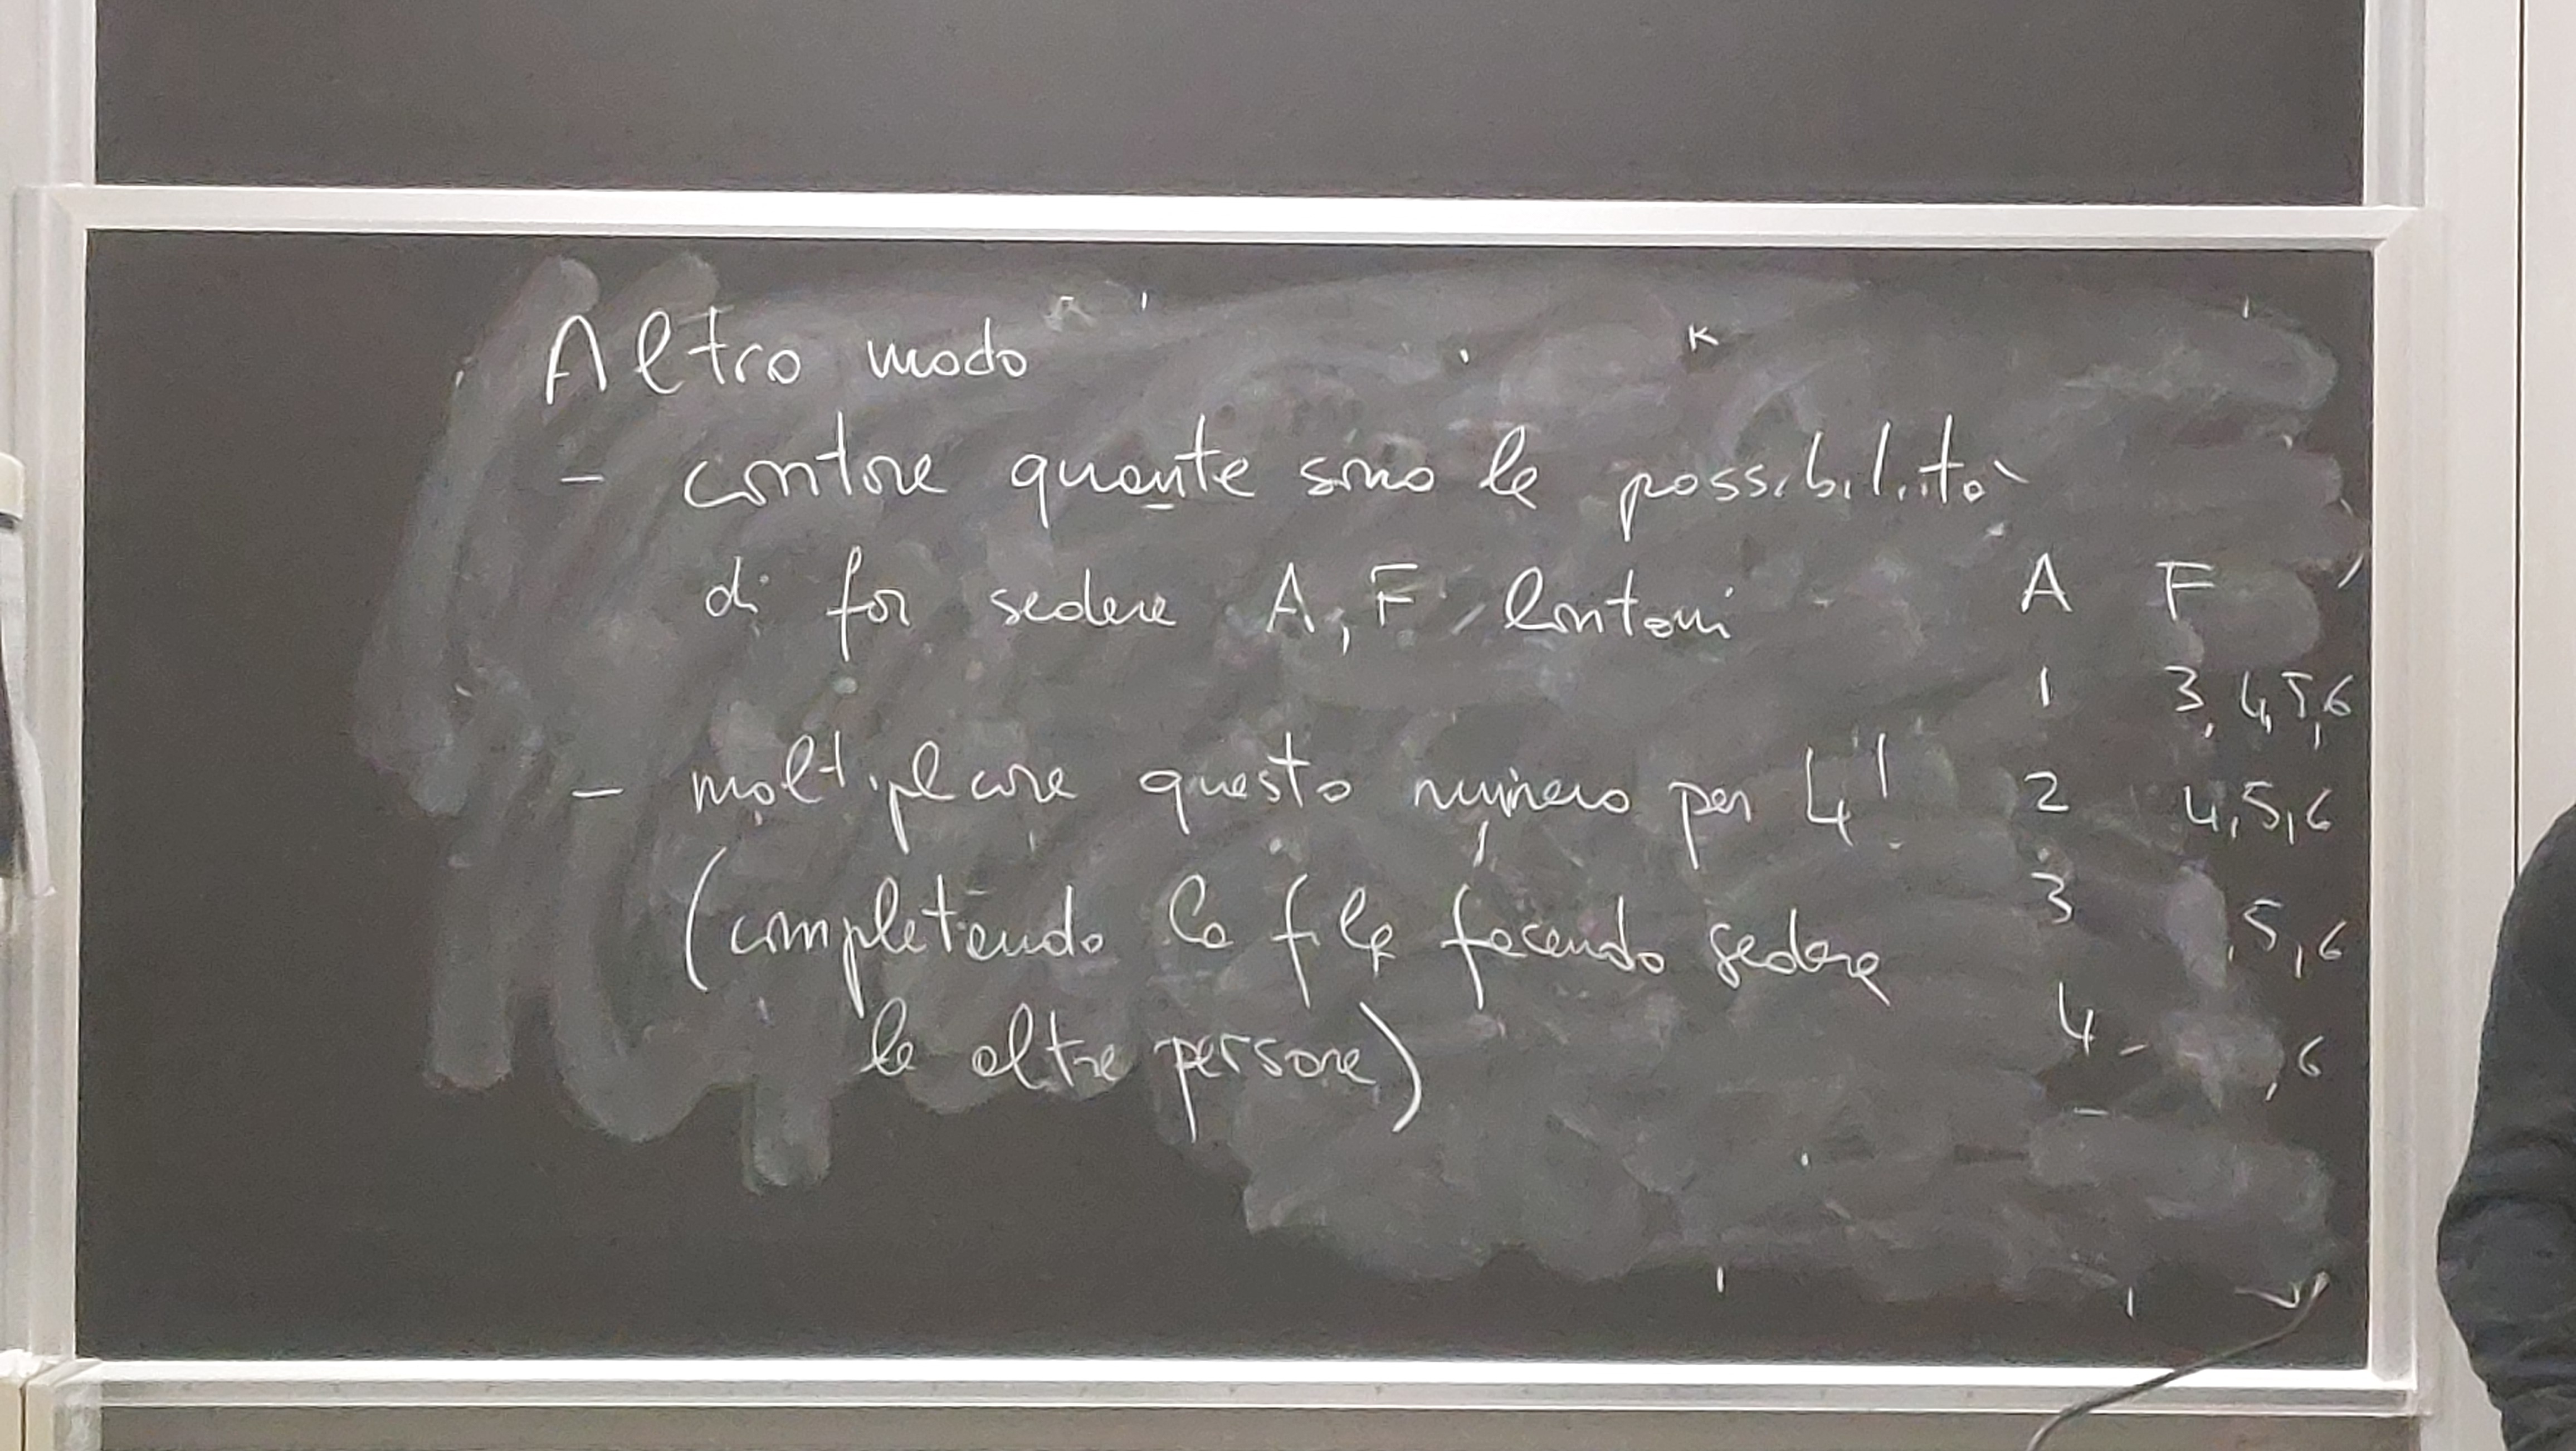 Altro modo
- contare quante sono le possibilità
di far sedere A, F lontani
- moltiplicare questo numero per 4!
(completando la fila facendo sedere
le altre persone)
A F
1 3, 4, 5, 6
2 4, 5, 6
3 , 5, 6
4 - , 6